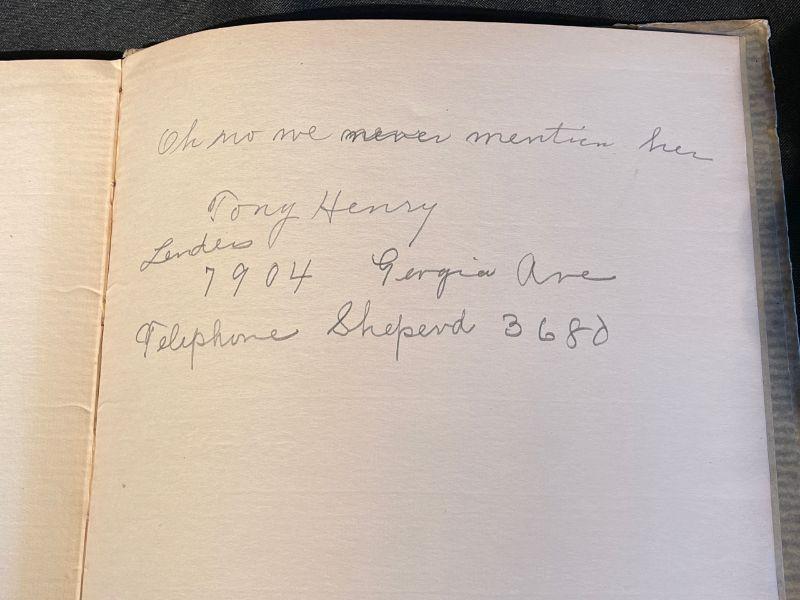 Oh no we never mention her
Tony Henry
Lenders
7904 Gergia Ave
Telephone Sheperd 3680